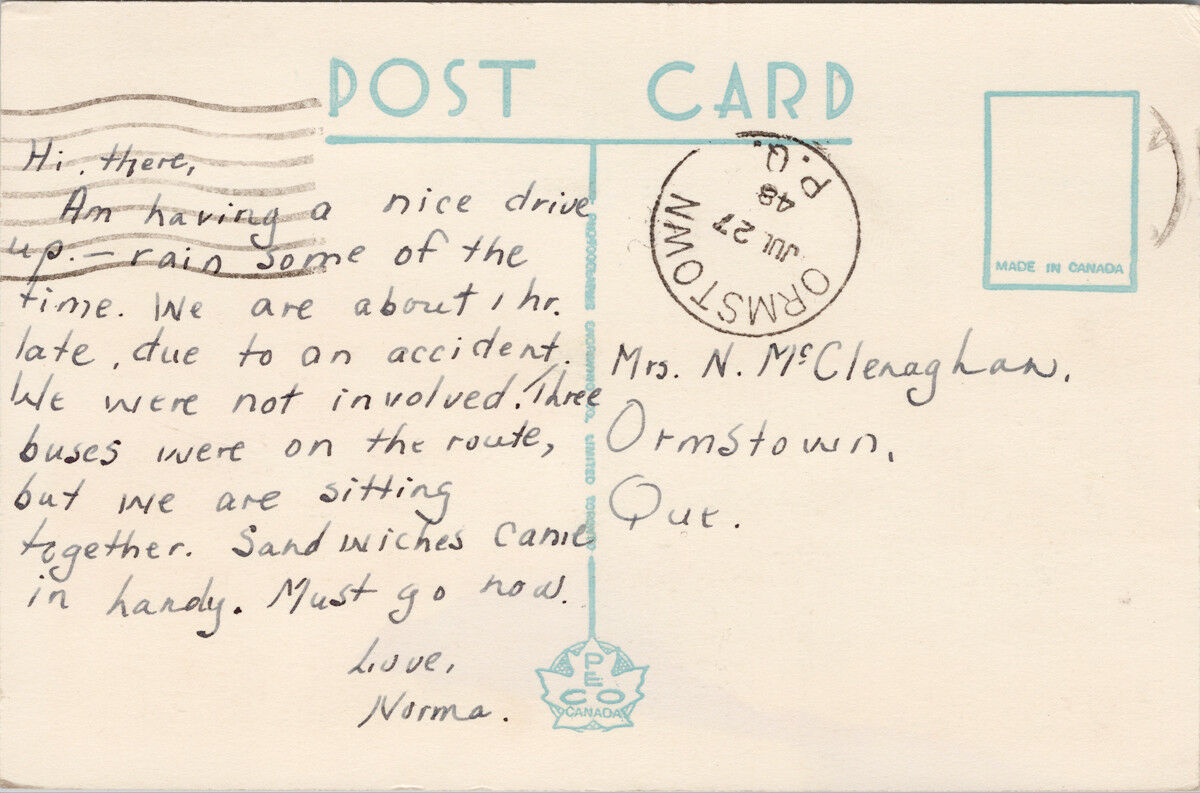 POST CARD
Hi there,
Am having a nice drive
up. — rain some of the
time. We are about 1 hr.
late, due to an accident.
We were not involved. Three
buses were on the route,
but we are sitting
together. Sandwiches came
in handy. Must go now.
Love,
Norma.
ORMSTOWN
JUL 27
48
P.Q.
MADE IN CANADA
Mrs. N. McClenaghan.
Ormstown,
Que.
PHOTOGELATINE ENGRAVING CO. LIMITED TORONTO
PECO
CANADA